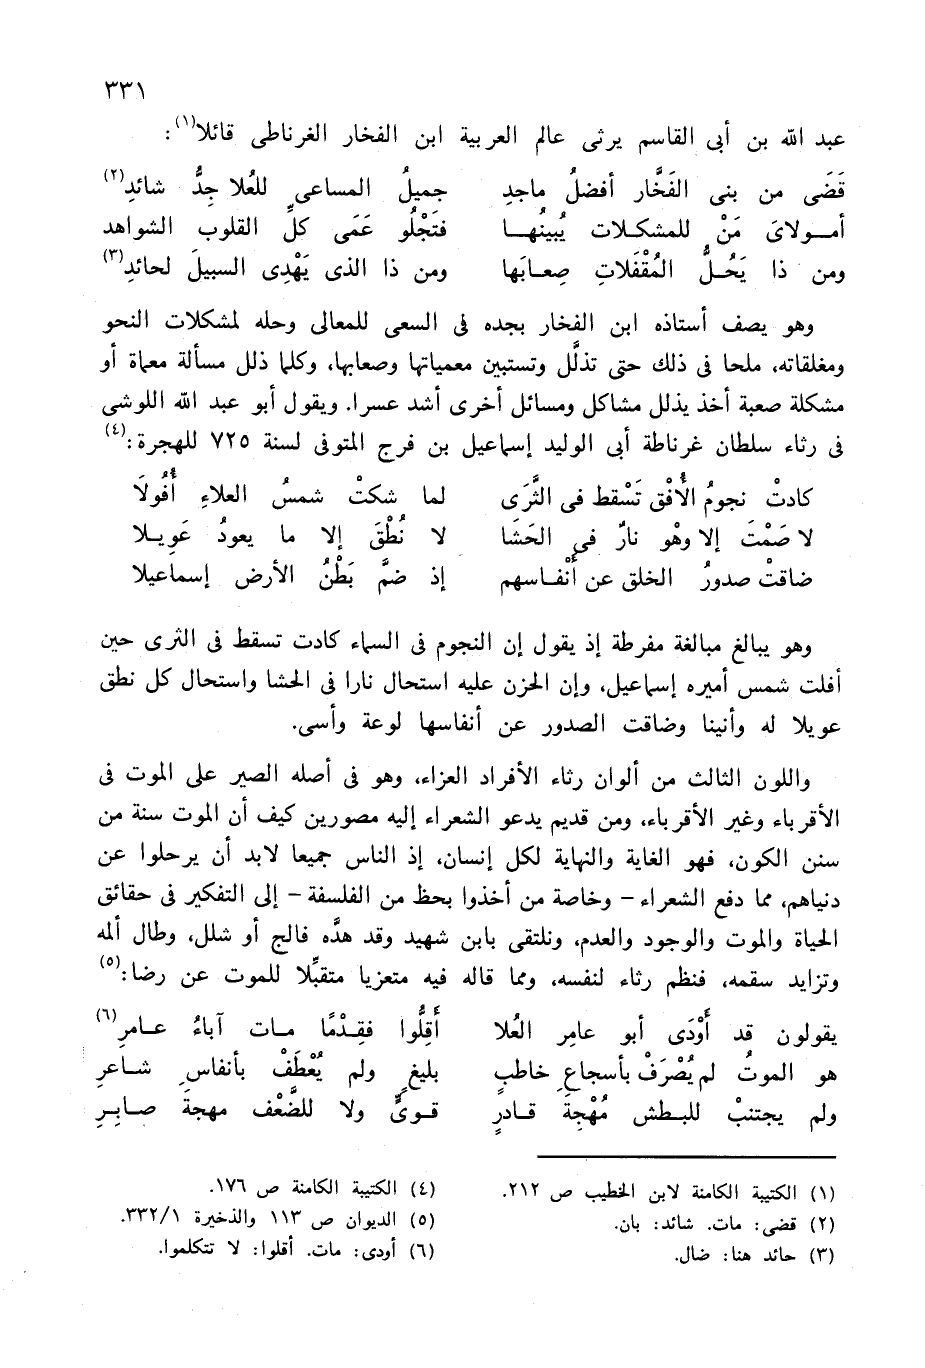 ٣٣١
عبد الله بن أبى القاسم يرثى عالم العربية ابن الفخار الغرناطى قائلا(١):
قَضَى من بنى الفَخَّار أفضلُ ماجدِ جميلُ المساعى للعُلا جِدُّ شائدِ(٢)
أمـولاىَ مَنْ للمشكـلات يُبينُهـا فتَجْلُو عَمَى كلِّ القلوب الشواهد
ومن ذا يَحُـلُّ المُقْفَلاتِ صِعـابَها ومن ذا الذى يَهْدِى السبيلَ لحائدِ(٣)
وهو يصف أستاذه ابن الفخار بجده فى السعى للمعالى وحله لمشكلات النحو
ومغلقاته، ملحا فى ذلك حتى تذلَّل وتستبين معمياتها وصعابها، وكلما ذلل مسألة معماة أو
مشكلة صعبة أخذ يذلل مشاكل ومسائل أخرى أشد عسرا. ويقول أبو عبد الله اللوشى
فى رثاء سلطان غرناطة أبى الوليد إسماعيل بن فرج المتوفى لسنة ٧٢٥ للهجرة:(٤)
كادتْ نجومُ الأُفْق تَسْقط فى الثَّرَى لما شكتْ شمسُ العلاءِ أُفُولَا
لا صَمْتَ إلا وهْو نارٌ فى الحَشَا لا نُطْقَ إلا ما يعودُ عَوِيـلا
ضاقتْ صدورُ الخلق عن أَنْفـاسهم إذ ضمَّ بَطْنُ الأرض إسماعيلا
وهو يبالغ مبالغة مفرطة إذ يقول إن النجوم فى السماء كادت تسقط فى الثرى حين
أفلت شمس أميره إسماعيل، وإن الحزن عليه استحال نارا فى الحشا واستحال كل نطق
عويلا له وأنينا وضاقت الصدور عن أنفاسها لوعة وأسى.
واللون الثالث من ألوان رثاء الأفراد العزاء، وهو فى أصله الصبر على الموت فى
الأقرباء وغير الأقرباء، ومن قديم يدعو الشعراء إليه مصورين كيف أن الموت سنة من
سنن الكون، فهو الغاية والنهاية لكل إنسان، إذ الناس جميعا لابد أن يرحلوا عن
دنياهم، مما دفع الشعراء – وخاصة من أخذوا بحظ من الفلسفة – إلى التفكير فى حقائق
الحياة والموت والوجود والعدم، ونلتقى بابن شهيد وقد هدَّه فالج أو شلل، وطال ألمه
وتزايد سقمه، فنظم رثاء لنفسه، ومما قاله فيه متعزيا متقبِّلا للموت عن رضا:(٥)
يقولون قد أَوْدَى أبو عامِر العُلا أَقِلُّوا فقِدْمًا مـات آباءُ عـامرِ(٦)
هو الموتُ لم يُصْرَفْ بأسجاع خاطبٍ بليغٍ ولم يُعْطَفْ بأنفاسِ شـاعرِ
ولم يجتنبْ للبـطش مُهْجةَ قـادرٍ قـوىٍّ ولا للضَّعْف مهجةَ صـابِرِ
(١) الكتيبة الكامنة لابن الخطيب ص ٢١٢.
(٢) قضى: مات. شائد: بان.
(٣) حائد هنا: ضال.
(٤) الكتيبة الكامنة ص ١٧٦.
(٥) الديوان ص ١١٣ والذخيرة ٣٣٢/١.
(٦) أودى: مات. أقلوا: لا تتكلموا.